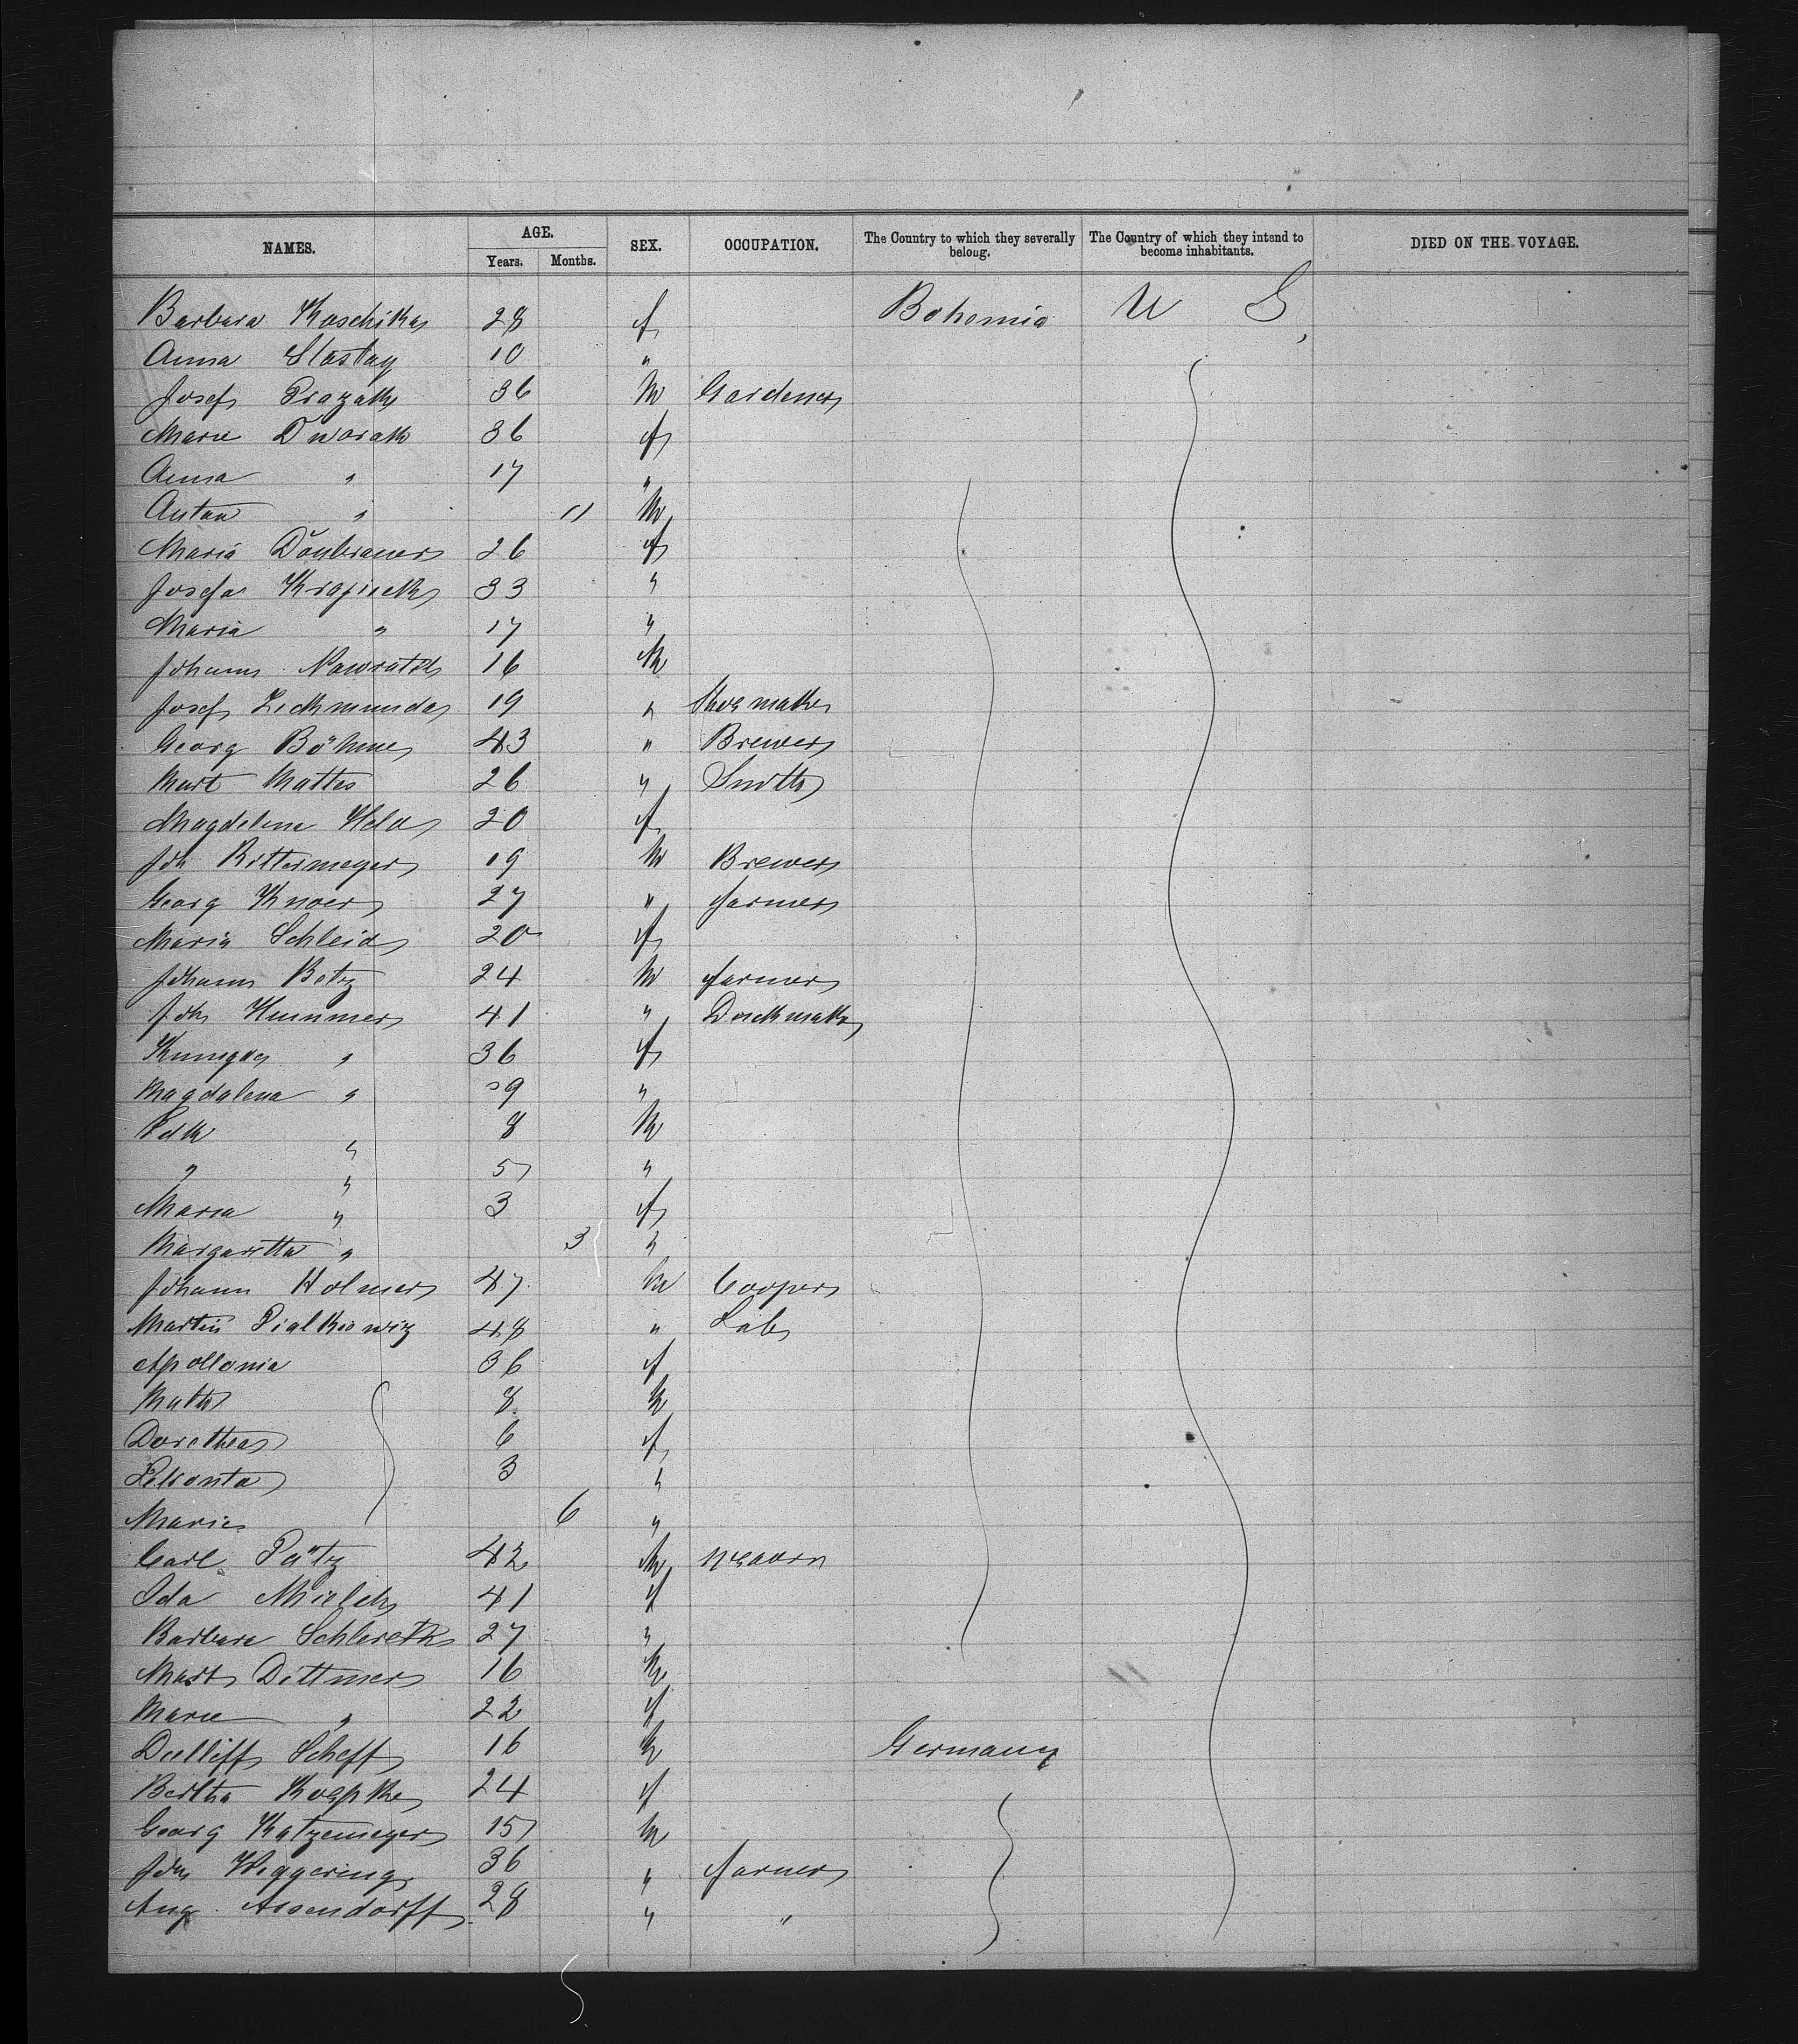 NAMES. AGE. Years. Months. SEX. OCCUPATION. The Country to which they severally belong. The Country of which they intend to become inhabitants. DIED ON THE VOYAGE.
Barbara Koschika 28 f Bohemia U S
Anna Slastay 10 "
Josef Prazak 36 M Gardener
Marie Dworak 36 f
Anna " 17 "
Anton " 11 M
Maria Doubrauer 26 f
Josefa 33 "
Maria " 17 "
Johann Nawratil 16 M
Josef Zickmunda 19 " Shoemaker
Georg Böhme 43 " Brewer
Mart Mattes 26 " Smith
Magdelena 20 f
Joh Rittermeyer 19 M Brewer
Georg Knoer 27 " farmer
Maria Schleid 20 f
Johann Betz 24 M farmer
Joh Hummer 41 "
" 36 f
Magdalena " 9 "
" 8 M
" " 5 "
Maria " 3 f
Margaretta " 3 "
Johann Holmer 47 M Cooper
Martin Pialkiowiz 48 " Lab
Apollonia 36 f
Math 8 M
Dorethea 6 f
3 "
Marie 6 "
Carl Pätz 42 M
Ida Mielch 41 f
Barbara Schlereth 27 "
Mart Dittmer 16 M
Marie " 22 f
Detliff Scheff 16 M Germany
Bertha Koepke 24 f
Georg Katzemeyer 15 M
Joh Wiggering 36 " farmer
Aug. Assendorff 28 " "